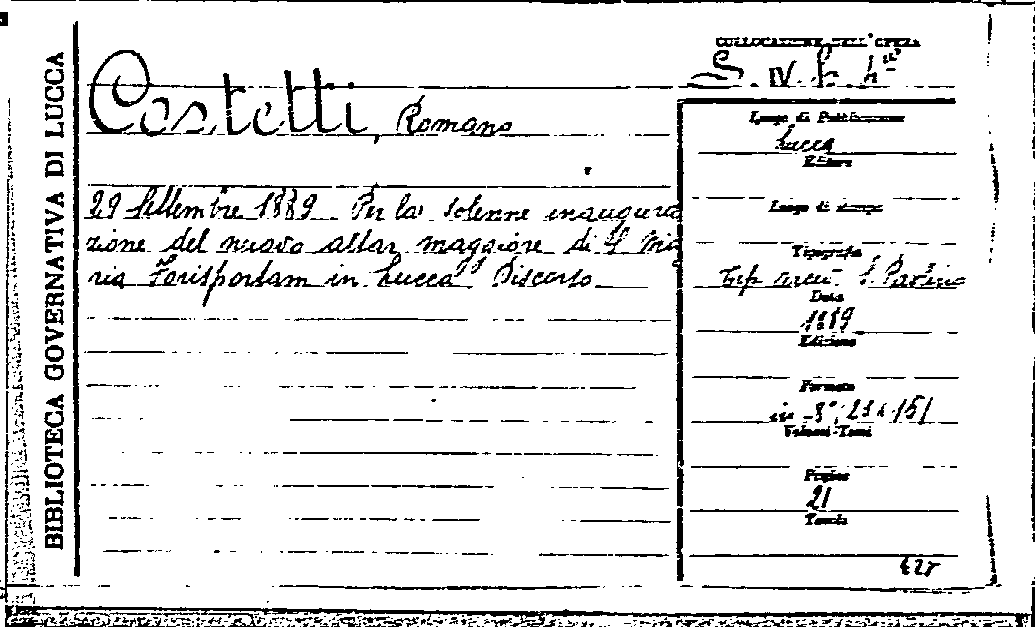 BIBLIOTECA GOVERNATIVA DI LUCCA
COLLOCAZIONE DELL'OPERA
Costetti, Romano
29 Settembre 1889 Per la solenne inaugura
zione del nuovo altar maggiore di S Ma
ria Forisportam in Lucca Discorso
Luogo di Pubblicazione
Lucca
Editore
Luogo di stampa
Tipografia
Tip arciv. S. Paolino
Data
1889
Edizione
Formato
in -8°, 23 x 151
Volumi-Tomi
Pagine
21
Tavole